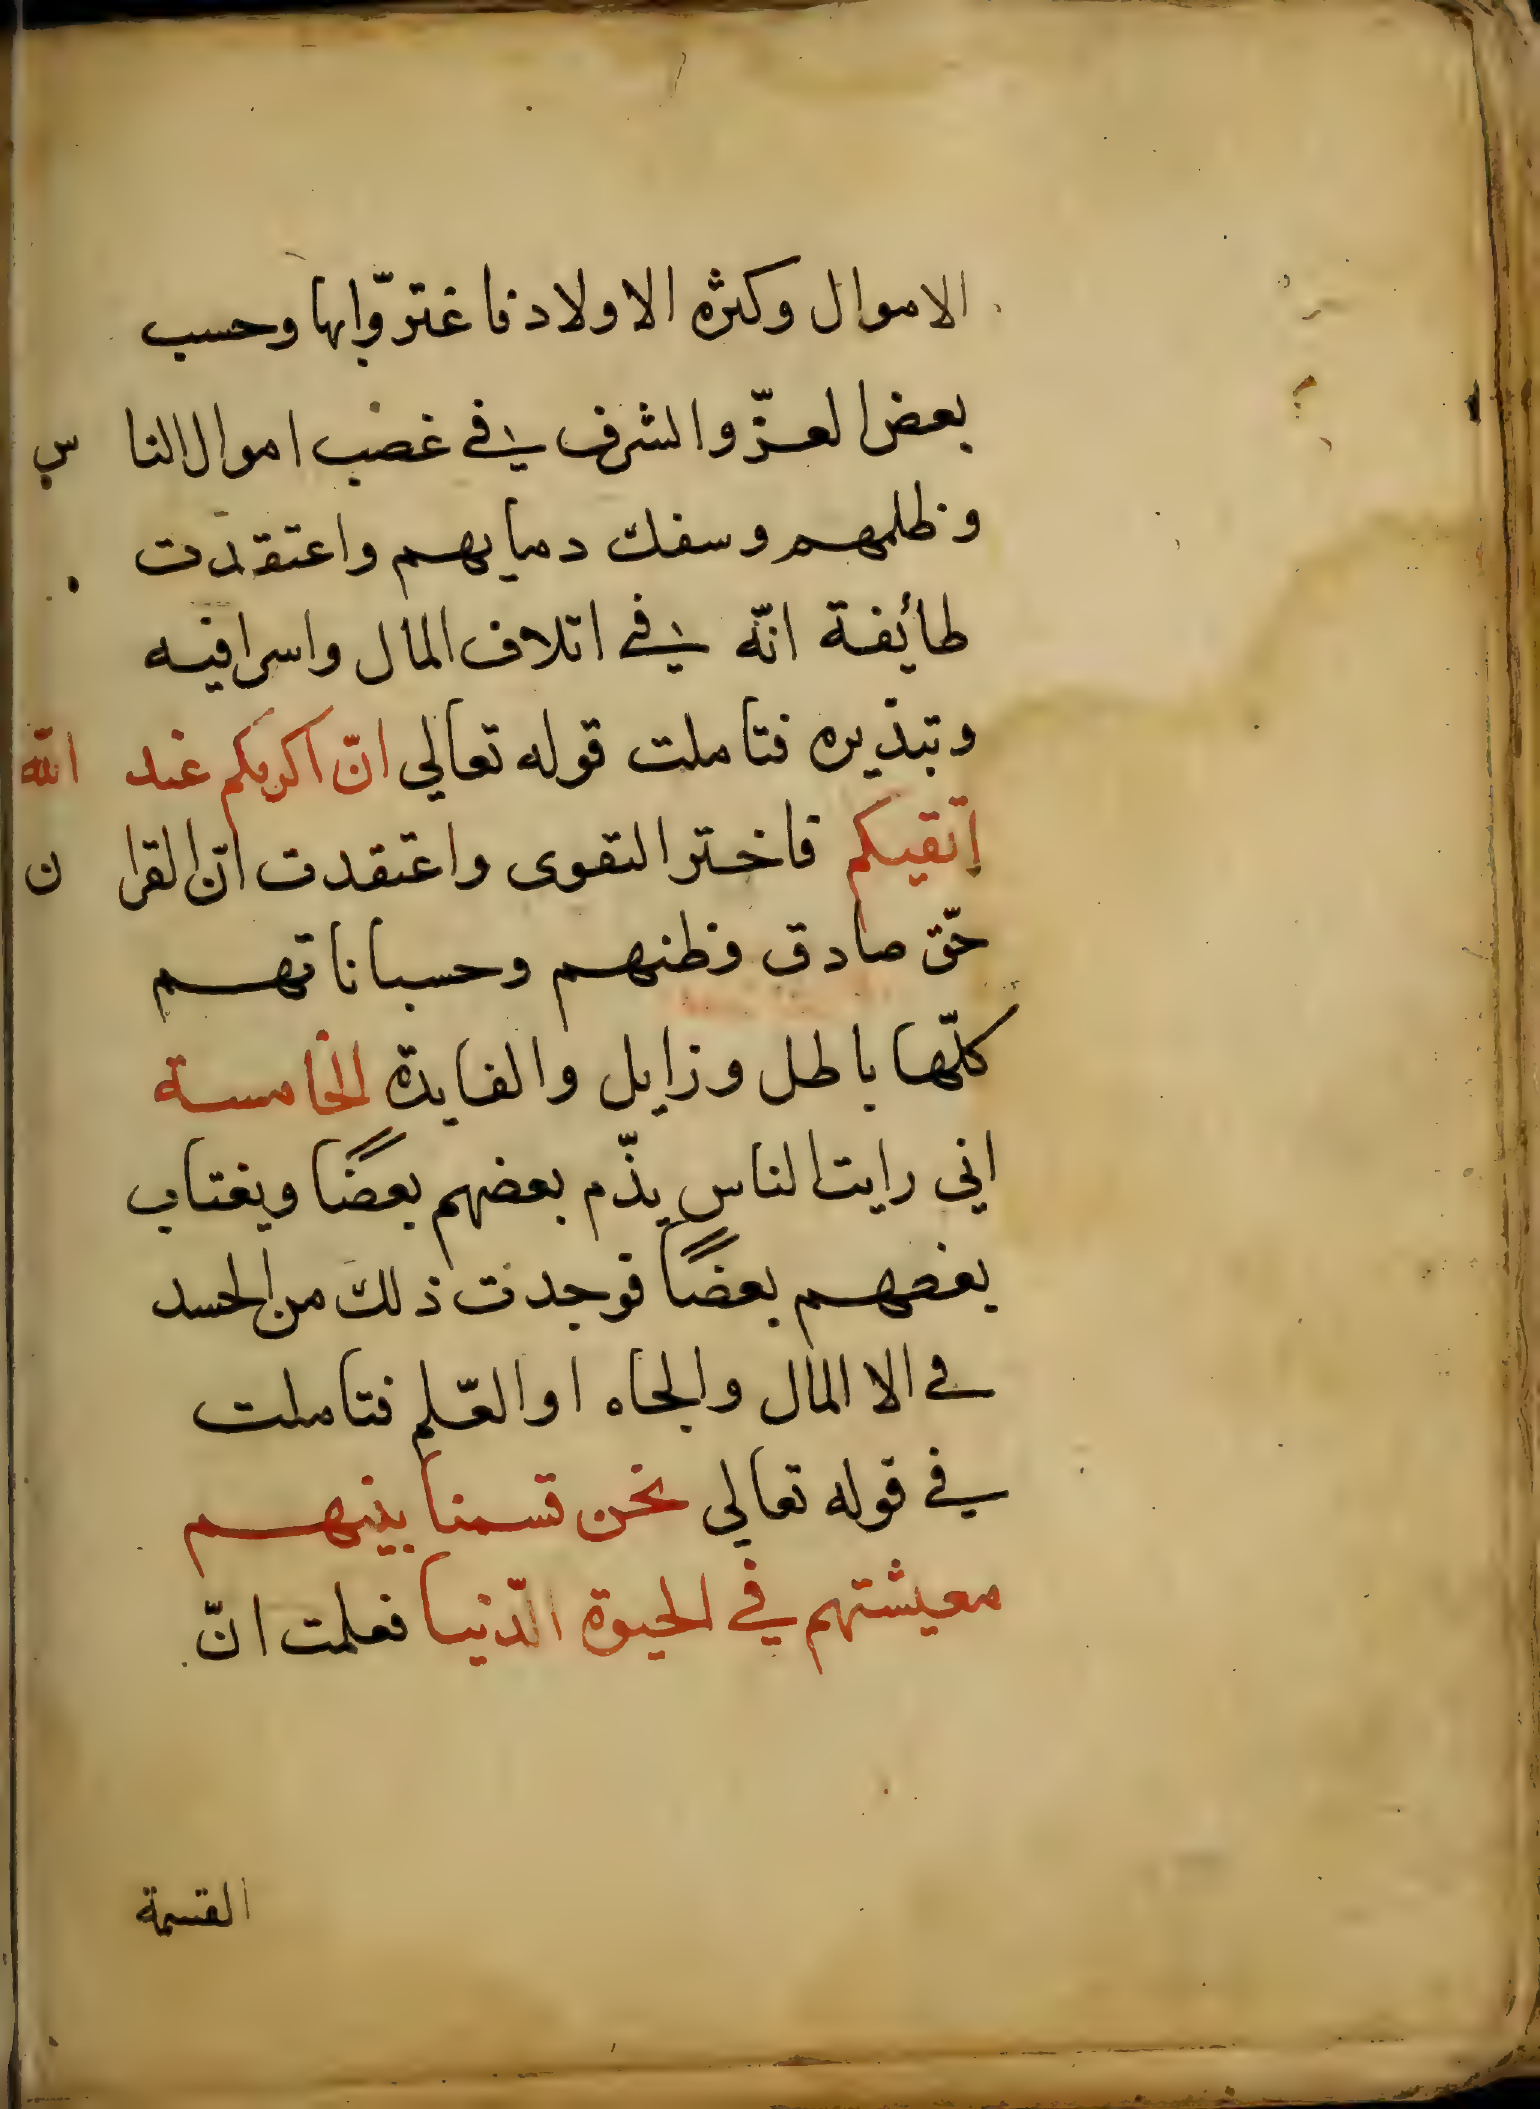 الاموال وكثره الاولاد فاغترّوابها وحسب
بعض العزّ والشرف في غصب اموال الناس
وظلمهم وسفك دمايهم واعتقدت
طائفة انّه في اتلاف المال واسرافيه
وتبذيره فتاملت قوله تعالي انّ اكرمكم عند الله
اتقيكم فاختر التقوى واعتقدت انّ القران
حّق صادق وظنهم وحسباناتهم
كلّها باطل وزايل والفايدة الخامسة
اني رايت الناس يذّم بعضهم بعضًا ويغتاب
بعضهم بعضًا فوجدت ذلك من الحسد
في الا المال والجاه او العّلم فتاملت
في قوله تعالي نحن قسمنا بينهم
معيشتهم في الحيوة الّدنيا فعلمت انّ
القسمة